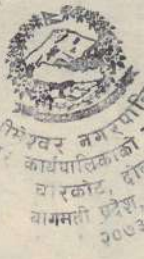 भीमेश्वर नगरपालि
र कार्यपालिकाको
चरिकोट, दो
बागमती प्रदेश
२०७३